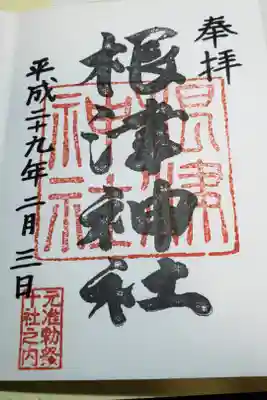 奉拝
根津神社
根津神社
平成二十九年二月三日
元准勅祭
十社之内